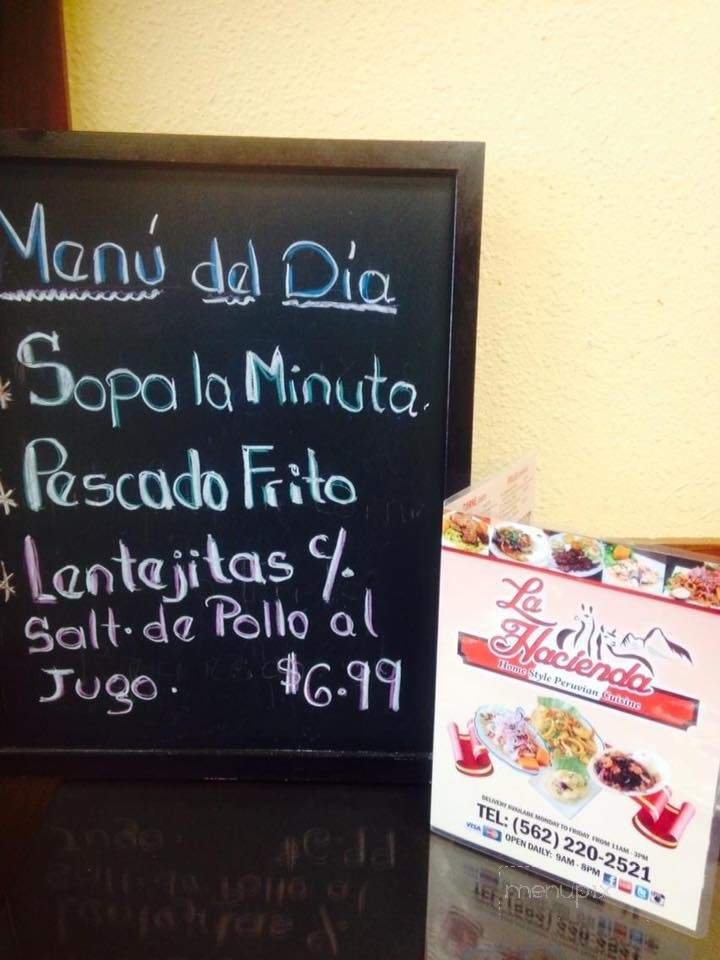 Menú del Día
* Sopa la Minuta.
* Pescado Frito
* Lentejitas c/.
Salt. de Pollo al
Jugo. $6.99
La
Hacienda
Home Style Peruvian Cuisine
DELIVERY AVAILABE MONDAY TO FRIDAY FROM 11AM - 3PM
TEL: (562) 220-2521
VISA OPEN DAILY: 9AM - 8PM
menupix